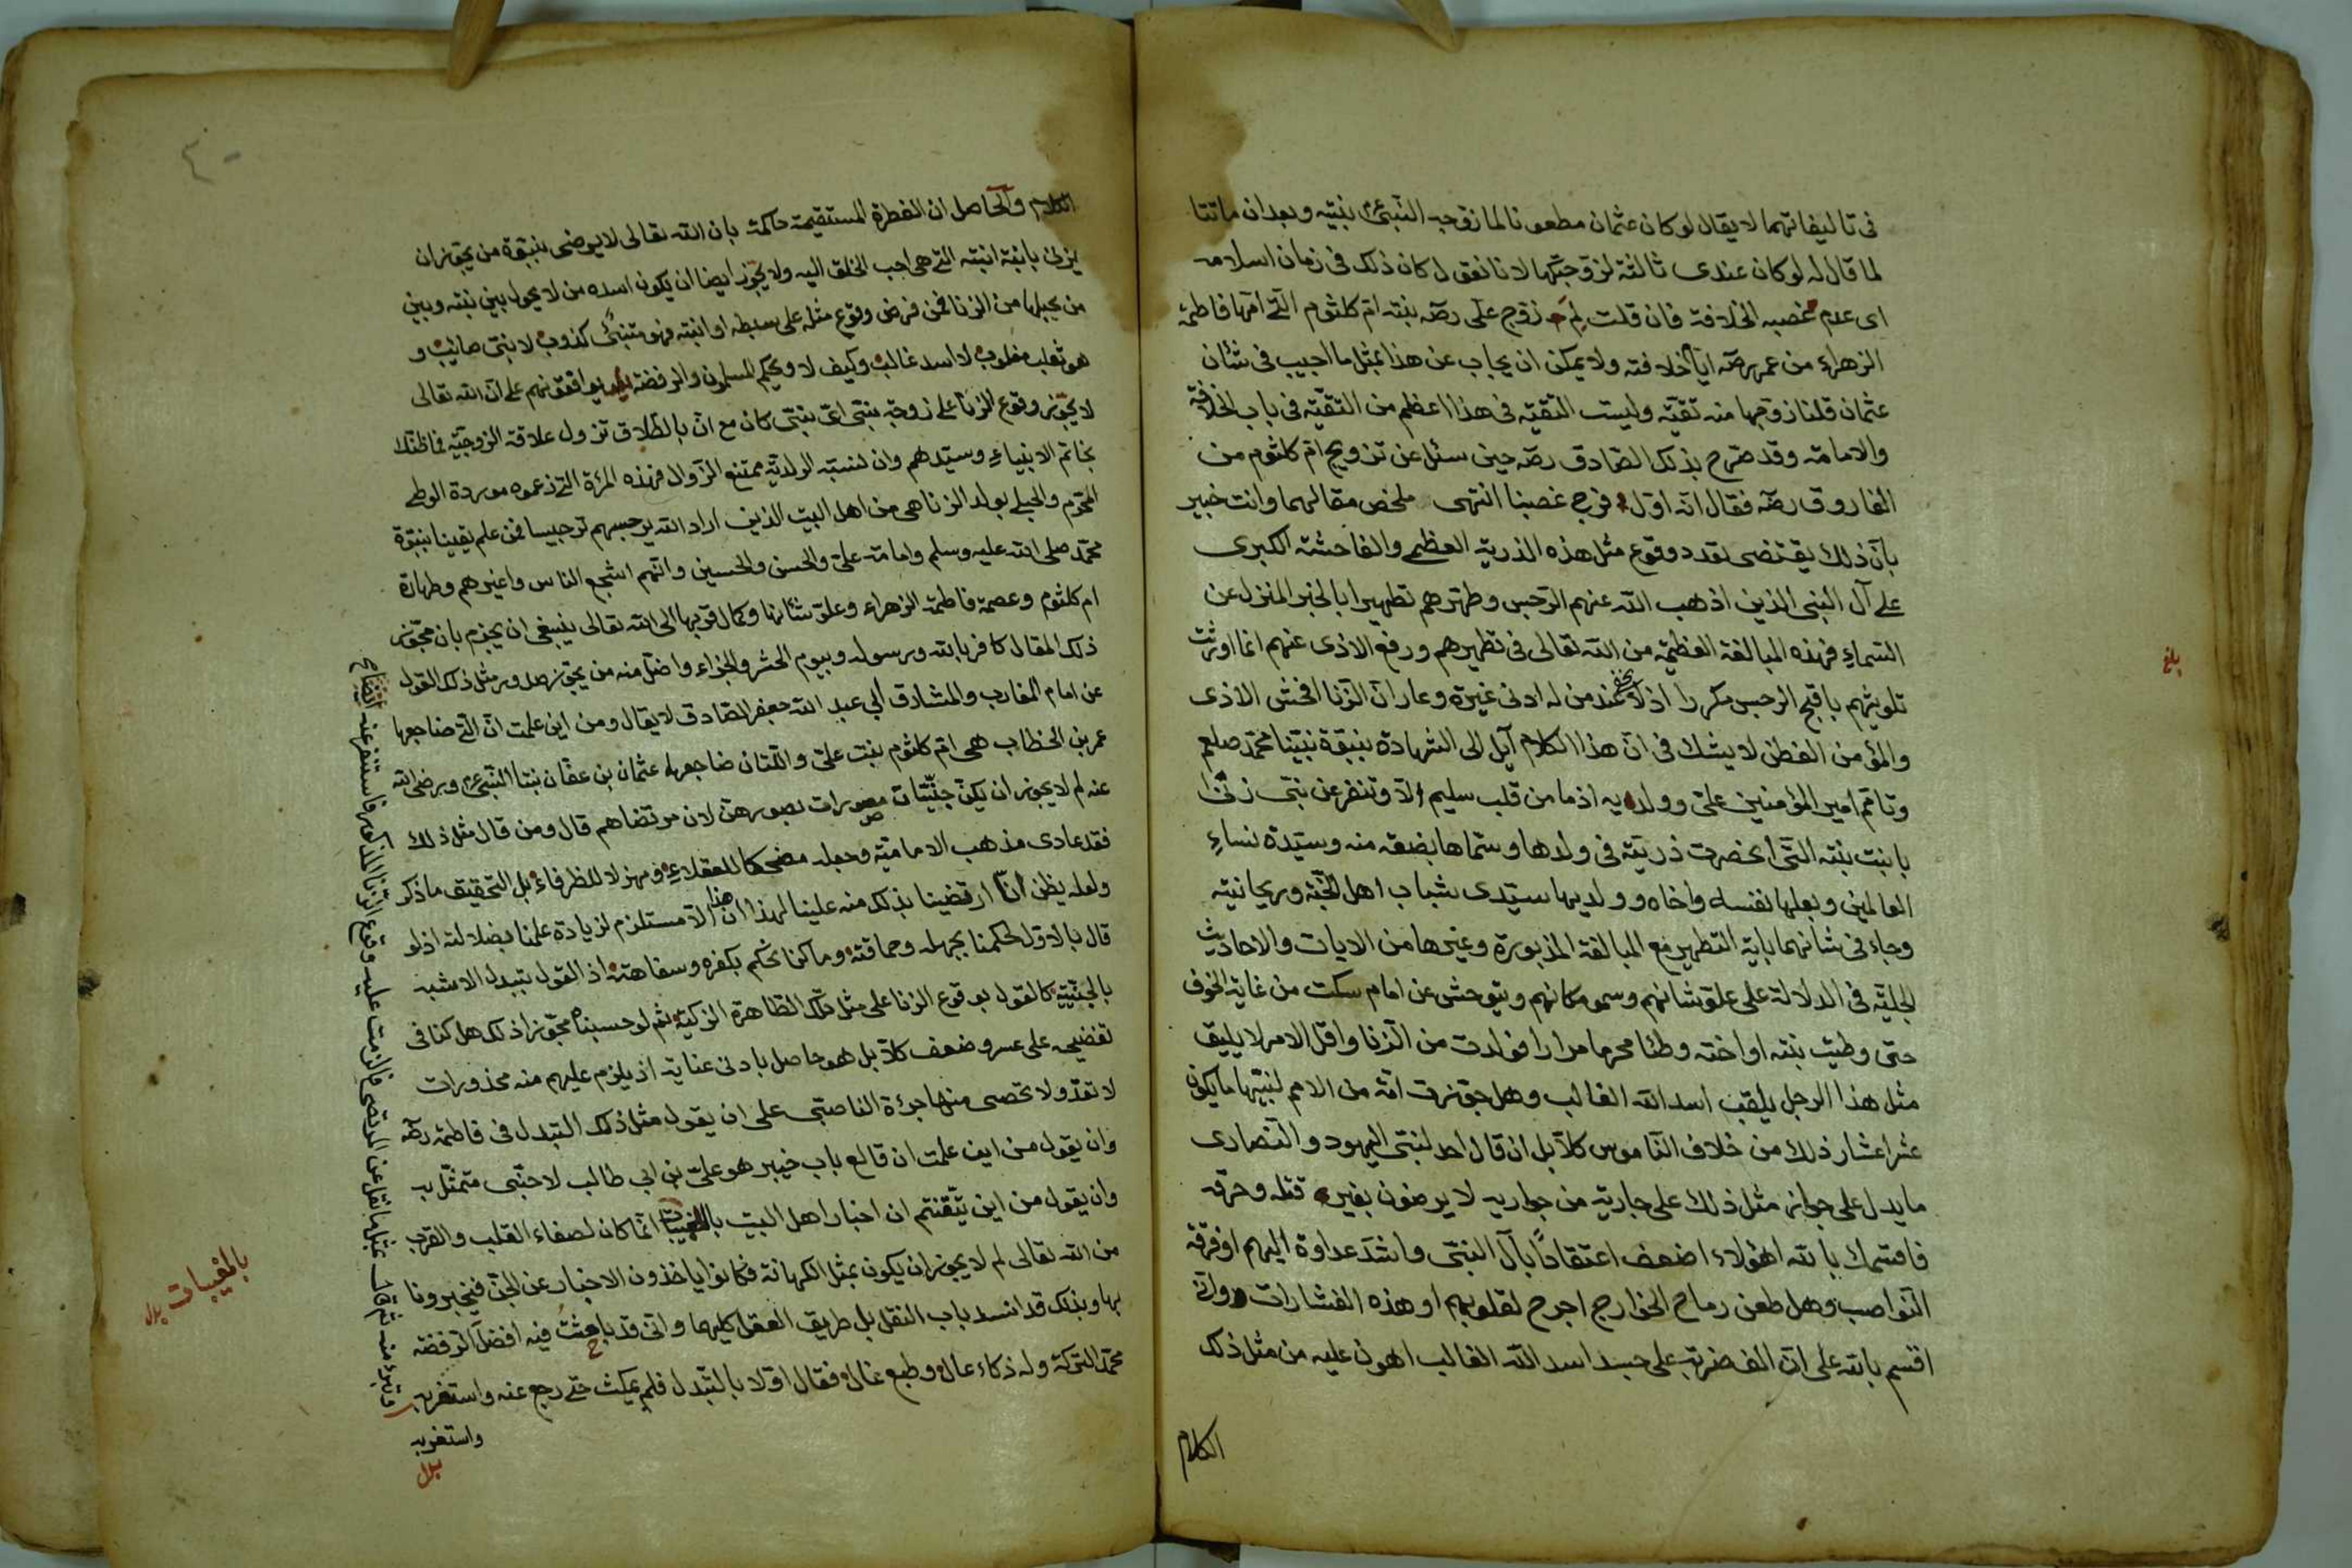 فى تاليفاتهما لا يقال لو كان عثمان مطعونا لما زوجه النبىء بنتيه وبعد ان ماتتا
لما قال له لو كان عندى ثالثة لزوجتكها لانا نقول كان ذلك فى زمان اسلامه
اى عدم غصبه الخلافة فان قلت لم زوج على رضه بنته ام كلثوم التى امها فاطمة
الزهراء من عمر رضه ايام خلافته ولا يمكن ان يجاب عن هذا بمثل ما اجيب فى شان
عثمان قلنا زوجها منه تقية وليست التقية فى هذا اعظم من التقية فى باب الخلافة
والامامة وقد صرح بذلك الصادق رضه حين سئل عن تزويج ام كلثوم من
الفاروق رضه فقال انه اول فرج غصبنا انتهى ملخص مقالهما وانت خبير
بان ذلك يقتضى تعدد وقوع مثل هذه الذرية العظمى والفاحشة الكبرى
على آل النبى الذين اذهب الله عنهم الرجس وطهرهم تطهيرا بالخبر المنزل عن
السماء فهذه المبالغة العظيمة من الله تعالى فى تطهيرهم ورفع الاذى عنهم انما اورثت
تلويثهم باقبح الرجس مكررا اذ لا يخفى عند من له ادنى غيرة وعار ان الزنا افحش الاذى
والمؤمن الفطن لا يشك فى ان هذا الكلام آيل الى الشهادة بنبوة نبينا محمد صلعم
وتامم امير المؤمنين على وولديه اذ ما من قلب سليم الا وتنفر عن نبى زنى
بابنت بنته التى انحصرت ذريته فى ولدها وسماها بضعة منه وسيدة نساء
العالمين وبعلها نفسه واخاه وولديها سيدى شباب اهل الجنة وريحانيته
وجاء فى شانهما باية التطهير مع المبالغة المذبورة وغيرها من الايات والاحاديث
الجلية فى الدلالة على علو شانهم وسمو مكانهم ويتوحش عن امام سكت من غاية الخوف
حتى وطيت بنته او اخته وطئا محرما مرارا فولدت من الزنا واقل الامر لا يليق
مثل هذا الرجل يلقب اسد الله الغالب وهل جوزت امة من الامم لنبيها ما يكون
عشر اعشار ذلك من خلاف الناموس كلا بل ان قال احد لنبى اليهود والنصارى
ما يدل على جواز مثل ذلك على جارية من جواريه لا يرضون بغير قتله وحرقه
فاقسمك بالله اهؤلاء اضعف اعتقاداً بآل النبى واشد عداوة اليهم او فرقة
النواصب وهل طعن رماح الخوارج اجرح لقلوبهم او هذه الفشارات وانى
اقسم بالله على ان الف ضربة على جسد اسد الله الغالب اهون عليه من مثل ذلك
الكلام
بلغ
الكلام والحاصل ان الفطرة المستقيمة حاكمة بان الله تعالى لا يرضى بنبوة من يجوز ان
يزنى بابنة ابنته التى هى احب الخلق اليه ولا يجوز ايضا ان يكون اسده من لا يحول بين بنته وبين
من يحبلها من الزنا فمن فرض وقوع مثله على سبطه او ابنته فهو متنبئ كذوب لا بنبى صائب و
هو ثعلب مغلوب لا اسد غالب وكيف لا ويحكم المسلمون والرفضة بموافقتهم على ان الله تعالى
لا يجوز وقوع الزنا على زوجة بنبى اى بنبى كان مع ان بالطلاق تزول علاقة الزوجية فما ظنك
بخاتم الانبياء وسيدهم وان لنسبة الولدية ممتنع الزوال فهذه المرئة التى زعموه موردة الوطى
المحرم والحبلى بولد الزنا هى من اهل البيت الذين اراد الله يرجسهم ترجيسا فمن علم يقينا بنبوة
محمد صلى الله عليه وسلم وامامة على والحسن والحسين وانهم اشجع الناس واغيرهم وطهارة
ام كلثوم وعصمة فاطمة الزهراء وعلو شانها وكمال قربها الى الله تعالى ينبغى ان يجزم بان مجوز
ذلك المقال كافر بالله ورسوله وبيوم الحشر والجزاء واضل منه من يجوز صدور مثل ذلك القول
عن امام المغارب والمشارق ابي عبد الله جعفر الصادق لا يقال ومن اين علمت ان التى ضاجعها
عمر بن الخطاب هى ام كلثوم بنت على واللتان ضاجعها عثمان بن عفان بنتا النبىء ورضى الله
عنه لم لا يجوز ان يكن جنيات مصورات بصورهن لان مرتضاهم قال ومن قال مثل ذلك
فقد عادى مذهب الامامية وجعله مضحكا للعقلاء ومهزلا للظرفاء بل التحقيق ما ذكر
ولعله يظن انا ارتضينا بذلك منه علينا لهذا ان هذا الا مستلزم لزيادة علمنا بضلالته اذ لو
قال بالاول لحكمنا بجهله وحماقته وما كنا نحكم بكفره وسفاهته اذ القول بتبدل الاشبه
بالجنية كالقول بوقوع الزنا على مثل تلك الطاهرة الزكية ثم لو حسبناه مجوز اذلك هل كنا فى
تفضيحه على عسر وضعف كلا بل هو حاصل بادنى عناية اذ يلزم عليهم منه محذورات
لا تعد ولا تحصى منها جرءة الناصبى على ان يقول مثل ذلك التبدل فى فاطمة رضه
وان يقول من اين علمت ان قالع باب خيبر هو على بن ابي طالب لا جنى متمثل به
وان يقول من اين تيقنتم ان اخبار اهل البيت بالمغيبات انما كان لصفاء القلب والقرب
من الله تعالى لم لا يجوز ان يكون بمثل الكهانة فكانوا ياخذون الاخبار عن الجن فيخبرونا
بها وبذلك قد انسد باب النقل بل طريق العقل كليهما وانى قد باحثت فيه افضل الرفضة
محمد التركة وله ذكاء عال وطبع غال فقال اولا بالتبدل فلم يمكث حتى رجع عنه واستغربه
واستغربه
بدل
بالمغيبات بدل
٤٠